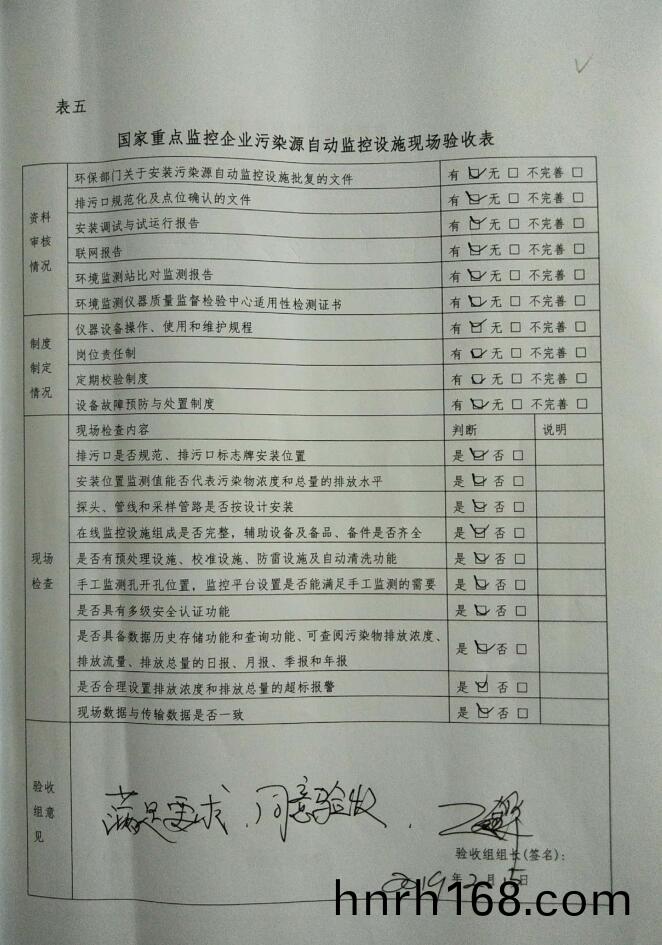 表五
国家重点监控企业污染源自动监控设施现场验收表
资料审核情况
环保部门关于安装污染源自动监控设施批复的文件 有 ☑ 无 □ 不完善 □
排污口规范化及点位确认的文件 有 ☑ 无 □ 不完善 □
安装调试与试运行报告 有 ☑ 无 □ 不完善 □
联网报告 有 ☑ 无 □ 不完善 □
环境监测站比对监测报告 有 ☑ 无 □ 不完善 □
环境监测仪器质量监督检验中心适用性检测证书 有 ☑ 无 □ 不完善 □
制度制定情况
仪器设备操作、使用和维护规程 有 ☑ 无 □ 不完善 □
岗位责任制 有 ☑ 无 □ 不完善 □
定期校验制度 有 ☑ 无 □ 不完善 □
设备故障预防与处置制度 有 ☑ 无 □ 不完善 □
现场检查
现场检查内容 判断 说明
排污口是否规范、排污口标志牌安装位置 是 ☑ 否 □
安装位置监测值能否代表污染物浓度和总量的排放水平 是 ☑ 否 □
探头、管线和采样管路是否按设计安装 是 ☑ 否 □
在线监控设施组成是否完整，辅助设备及备品、备件是否齐全 是 ☑ 否 □
是否有预处理设施、校准设施、防雷设施及自动清洗功能 是 ☑ 否 □
手工监测孔开孔位置，监控平台设置是否能满足手工监测的需要 是 ☑ 否 □
是否具有多级安全认证功能 是 ☑ 否 □
是否具备数据历史存储功能和查询功能、可查阅污染物排放浓度、
排放流量、排放总量的日报、月报、季报和年报 是 ☑ 否 □
是否合理设置排放浓度和排放总量的超标报警 是 ☑ 否 □
现场数据与传输数据是否一致 是 ☑ 否 □
验收组意见
满足要求，同意验收．
验收组组长(签名):
2019年2月15日
hnrh168.com